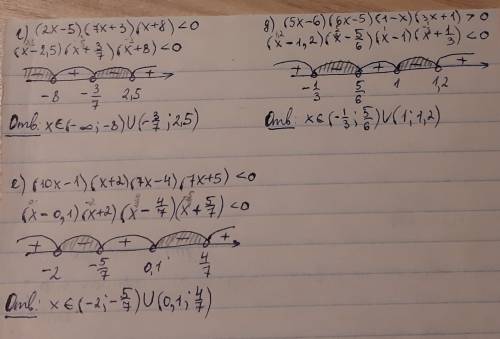 г) (2x-5)(7x+3)(x+8)<0
(x-2,5)(x+3/7)(x+8)<0
- + - +
-8 -3/7 2,5
Отв: x∈(-∞;-8)∪(-3/7;2,5)
д) (5x-6)(6x-5)(1-x)(3x+1)>0
(x-1,2)(x-5/6)(x-1)(x+1/3)<0
+ + +
-1/3 5/6 1 1,2
Отв: x∈(-1/3;5/6)∪(1;1,2)
е) (10x-1)(x+2)(7x-4)(7x+5)<0
(x-0,1)(x+2)(x-4/7)(x+5/7)<0
+ + +
-2 -5/7 0,1 4/7
Отв: x∈(-2;-5/7)∪(0,1;4/7)